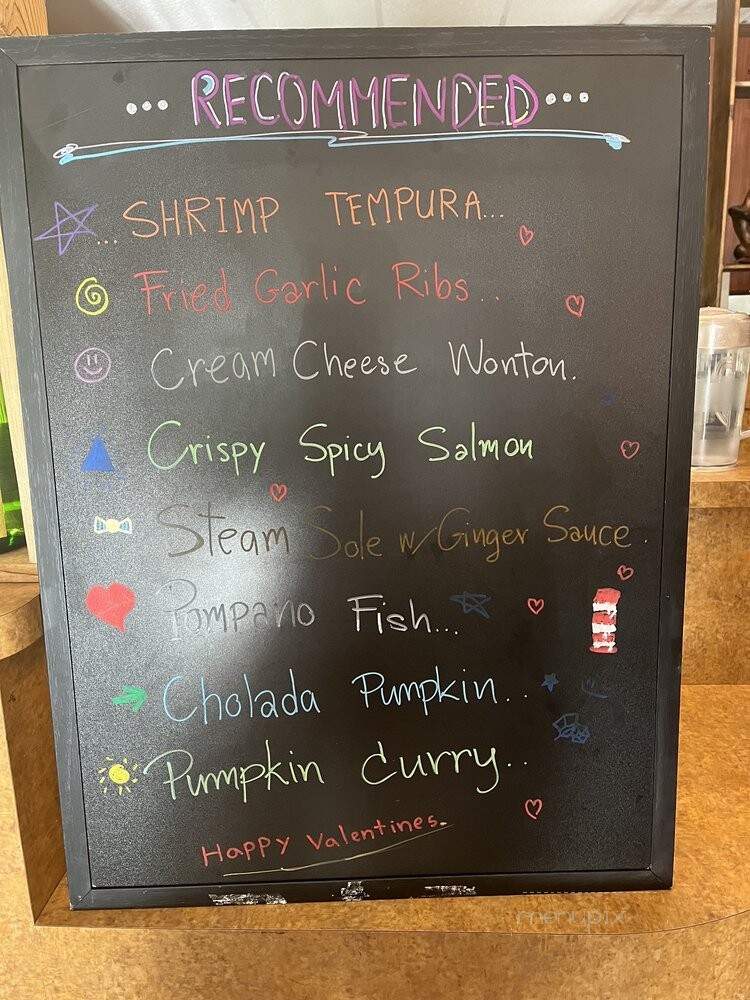 ... RECOMMENDED ...
... SHRIMP TEMPURA...
Fried Garlic Ribs..
Cream Cheese Wonton.
Crispy Spicy Salmon
Steam Sole w/Ginger Sauce.
Pompano Fish...
Cholada Pumpkin..
Pumpkin Curry..
Happy Valentines.
menupix